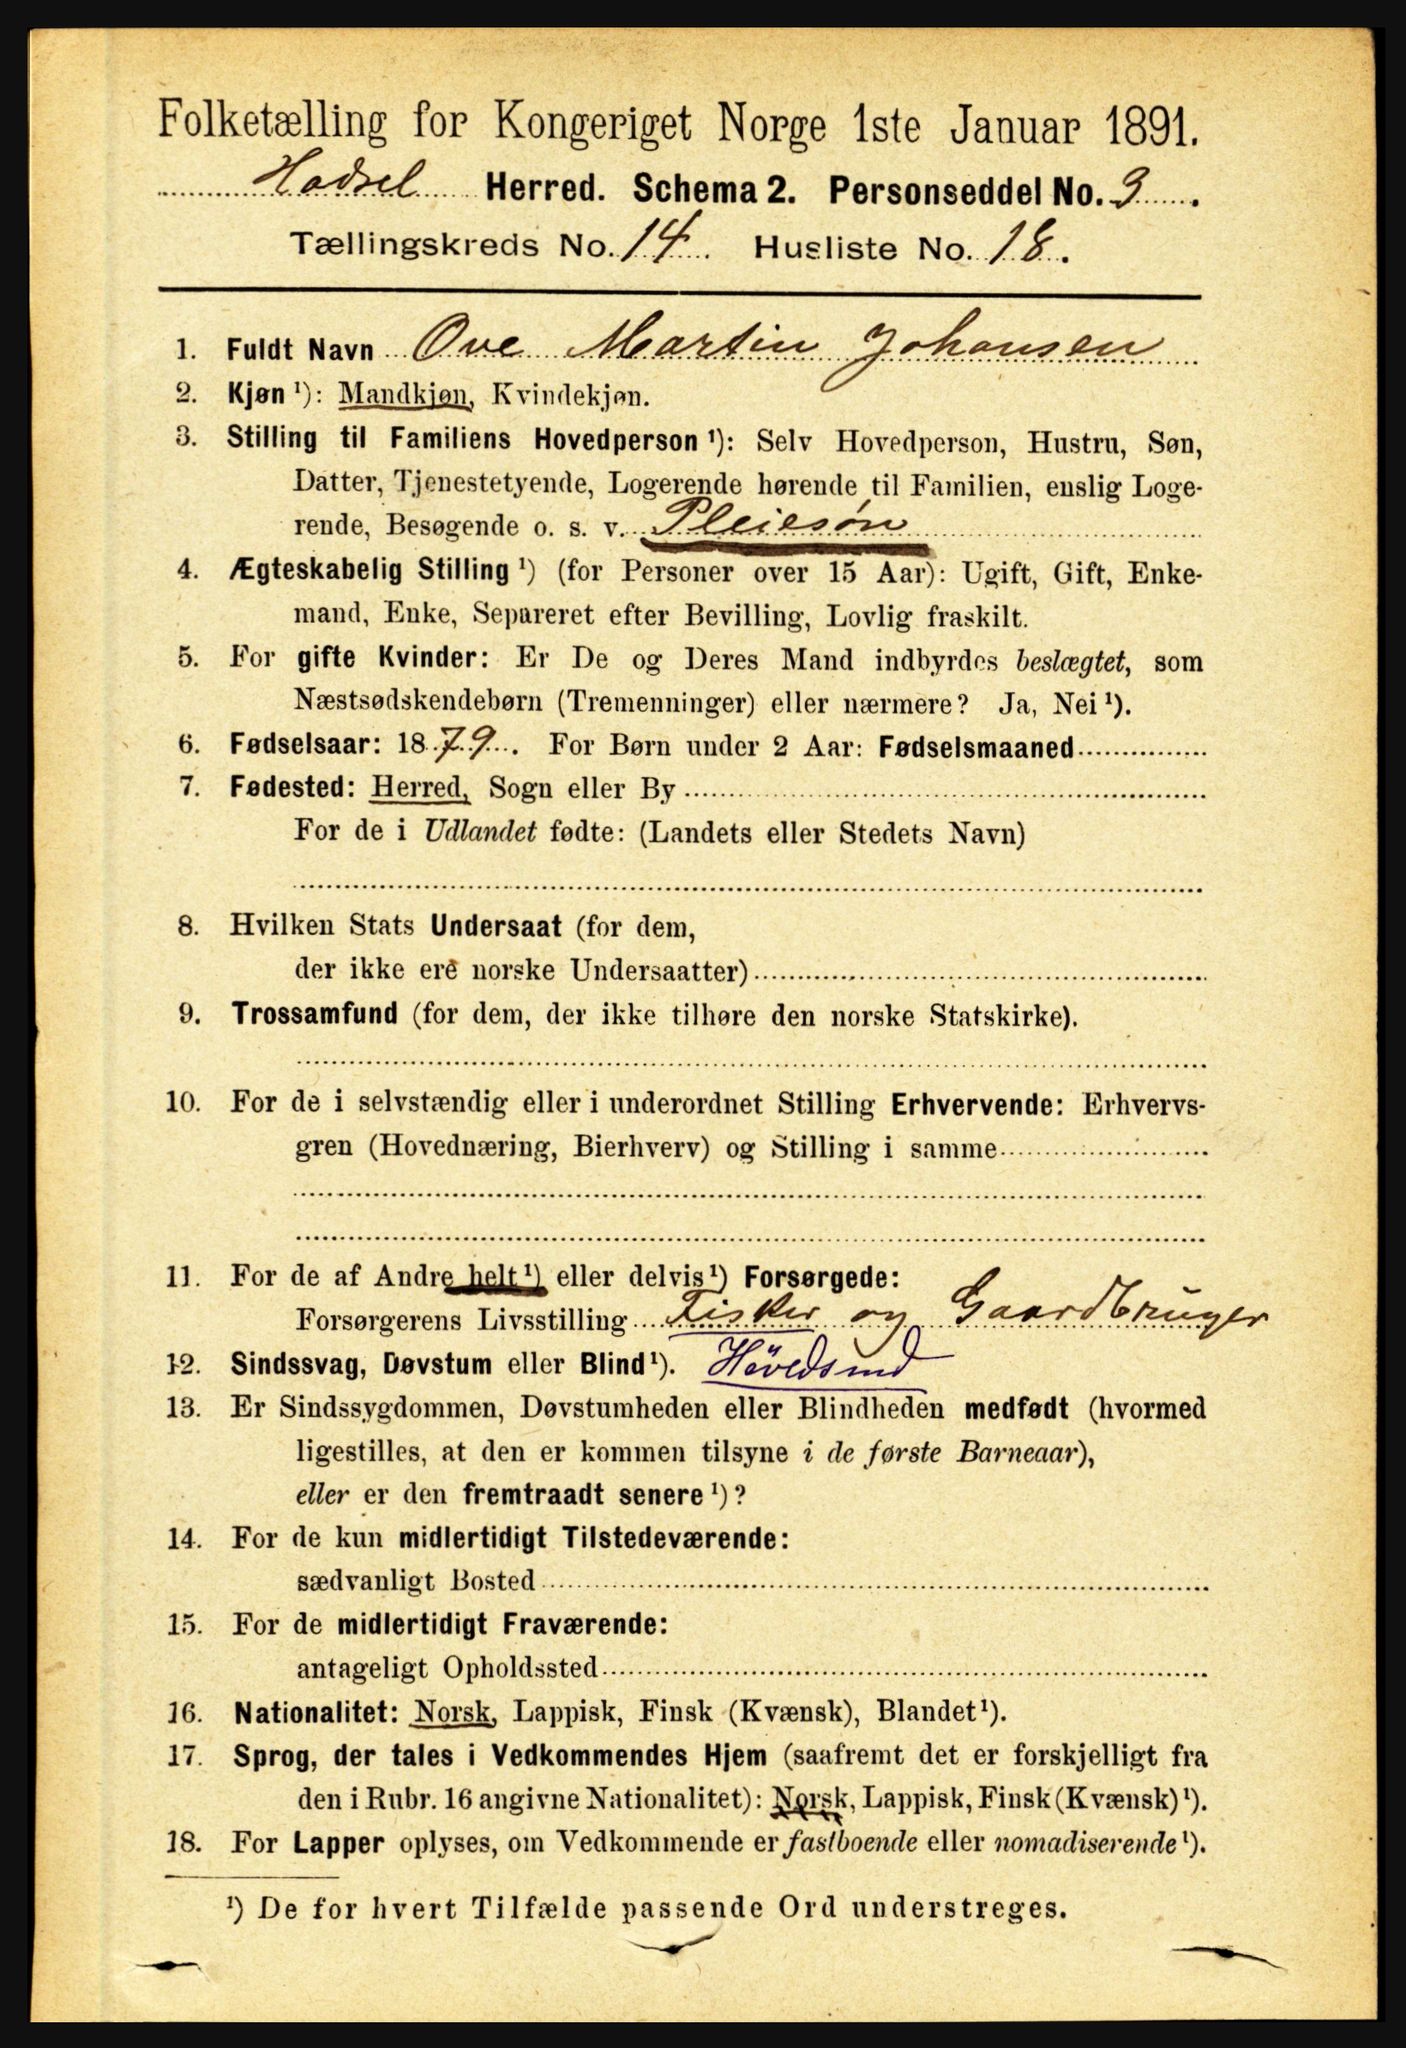 Folketælling for Kongeriget Norge 1ste Januar 1891.
Hadsel Herred. Schema 2. Personseddel No. 3.
Tællingskreds No. 14. Husliste No. 18.
1. Fuldt Navn Ove Martin Johansen
2. Kjøn ¹): Mandkjøn, Kvindekjøn.
3. Stilling til Familiens Hovedperson ¹): Selv Hovedperson, Hustru, Søn,
Datter, Tjenestetyende, Logerende hørende til Familien, enslig Loge-
rende, Besøgende o. s. v. Pleiesøn
4. Ægteskabelig Stilling ¹) (for Personer over 15 Aar): Ugift, Gift, Enke-
mand, Enke, Separeret efter Bevilling, Lovlig fraskilt.
5. For gifte Kvinder: Er De og Deres Mand indbyrdes beslægtet, som
Næstsødskendebørn (Tremenninger) eller nærmere? Ja, Nei ¹).
6. Fødselsaar: 1879. For Børn under 2 Aar: Fødselsmaaned
7. Fødested: Herred, Sogn eller By
For de i Udlandet fødte: (Landets eller Stedets Navn)
8. Hvilken Stats Undersaat (for dem,
der ikke ere norske Undersaatter)
9. Trossamfund (for dem, der ikke tilhøre den norske Statskirke).
10. For de i selvstændig eller i underordnet Stilling Erhvervende: Erhvervs-
gren (Hovednæring, Bierhverv) og Stilling i samme
11. For de af Andre helt ¹) eller delvis ¹) Forsørgede:
Forsørgerens Livsstilling Fisker og Gaardbruger
12. Sindssvag, Døvstum eller Blind ¹). Hövedsmd
13. Er Sindssygdommen, Døvstumheden eller Blindheden medfødt (hvormed
ligestilles, at den er kommen tilsyne i de første Barneaar),
eller er den fremtraadt senere ¹)?
14. For de kun midlertidigt Tilstedeværende:
sædvanligt Bosted
15. For de midlertidigt Fraværende:
antageligt Opholdssted
16. Nationalitet: Norsk, Lappisk, Finsk (Kvænsk), Blandet ¹).
17. Sprog, der tales i Vedkommendes Hjem (saafremt det er forskjelligt fra
den i Rubr. 16 angivne Nationalitet): Norsk, Lappisk, Finsk (Kvænsk) ¹).
18. For Lapper oplyses, om Vedkommende er fastboende eller nomadiserende ¹).
¹) De for hvert Tilfælde passende Ord understreges.